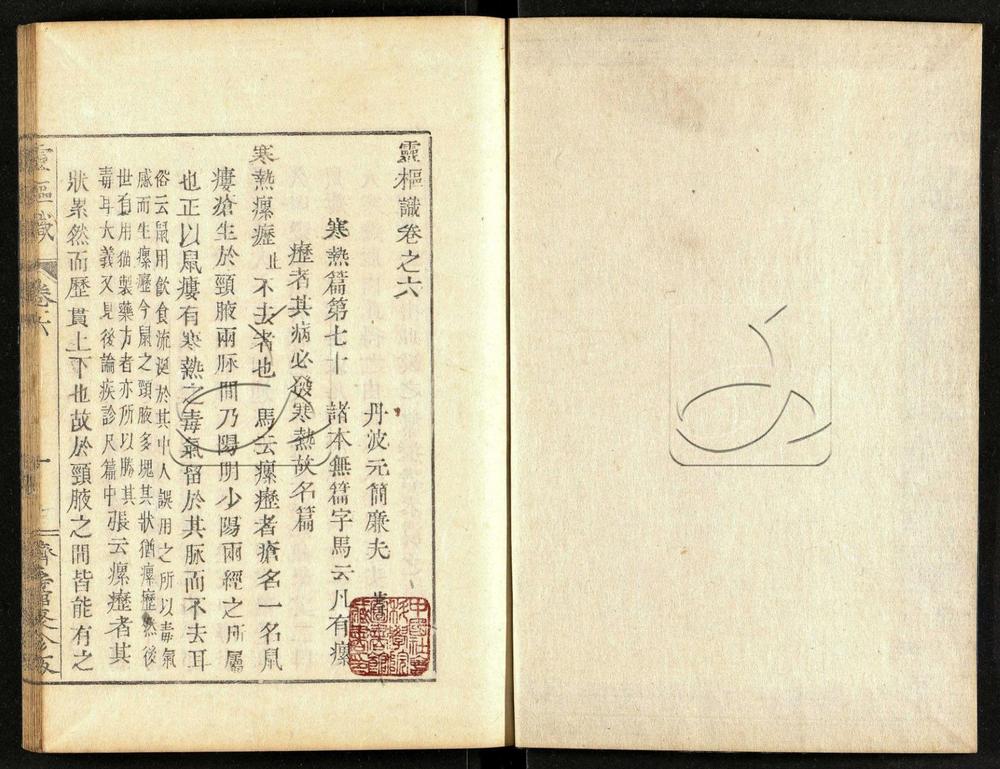 靈樞識卷之六
丹波元簡廉夫
寒熱篇第七十 諸本無篇字馬云凡有瘰
癧者其病必發寒熱故名篇
寒熱瘰癧止不去者也 馬云瘰癧者瘡名一名鼠
瘻瘡生於頸腋兩脈間乃陽明少陽兩經之所屬
也正以鼠瘻有寒熱之毒氣留於其脈而不去耳
俗云鼠用飲食流涎於其中人誤用之所以毒氣
感而生瘰癧今鼠之頸腋多塊其狀猶瘰癧然後
世有用猫製藥方者亦所以勝其
毒耳大義又見後論疾診尺篇中張云瘰癧者其
狀累然而歷貫上下也故於頸腋之間皆能有之
靈樞識
卷六
一
中國社會
科學院
圖書館
藏書